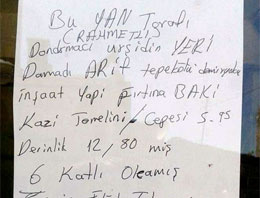 Bu YAN Tarafı
(RAHMETLİ)
Dondrmacı urşidin YERİ
Damadı ARİF tepeköylü
inşaat Yapi fırtına BAKİ
Kazi Temelini / Cepesi 5-95
Derinlik 12/80 miş
6 Katlı Olcamış